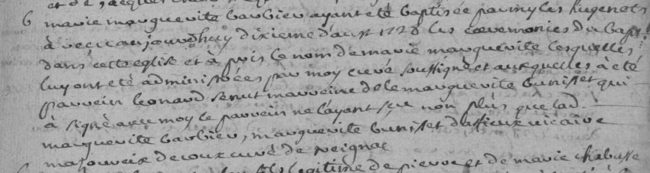 et de Jacques
6 marie marguerite barbier ayant ete baptisée parmy les hugenots
a receu aujourdhuy dixieme daust 1728 les ceremonies du bapt:
dans cette eglise et a pris le nom de marie marguerite lesquelles
luy ont été administrées par moy curé soussigné et auxquelles a été
parrein leonard senut marreine dlle marguerite brunissset qui
a signé avec moy le parrein ne l'ayant sçu non plus que lad.
marguerite barbier, marguerite brunisset dussieux vicaire
curé de reignac
legitime de pierre et de marie chabasse